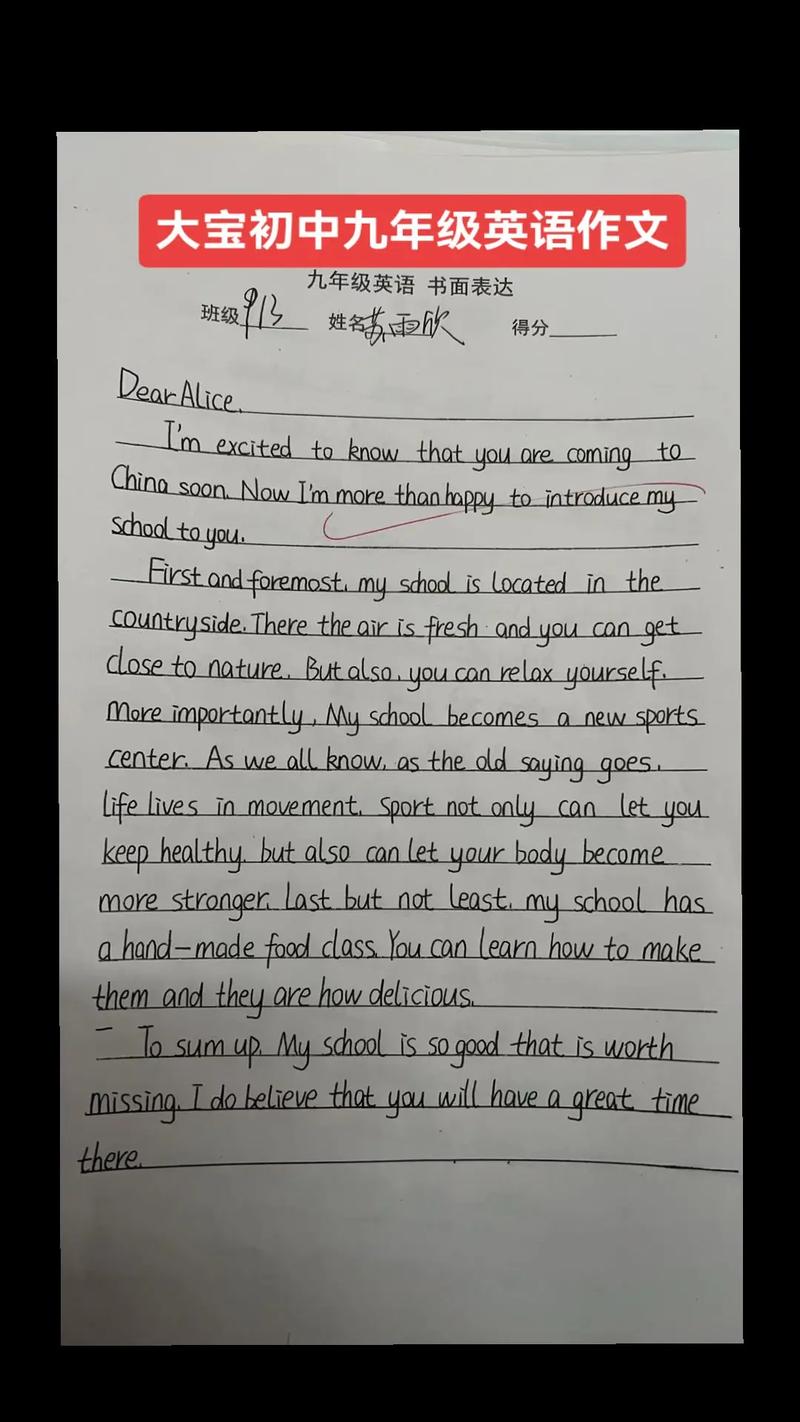 大宝初中九年级英语作文
九年级英语 书面表达
班级913 姓名苏雨欣 得分
Dear Alice,
I'm excited to know that you are coming to
China soon. Now I'm more than happy to introduce my
school to you.
First and foremost, my school is located in the
countryside. There the air is fresh and you can get
close to nature. But also, you can relax yourself.
More importantly, My school becomes a new sports
center. As we all know, as the old saying goes,
life lives in movement. Sport not only can let you
keep healthy, but also can let your body become
more stronger. Last but not least, my school has
a hand-made food class. You can learn how to make
them and they are how delicious.
To sum up, My school is so good that is worth
missing. I do believe that you will have a great time
there.